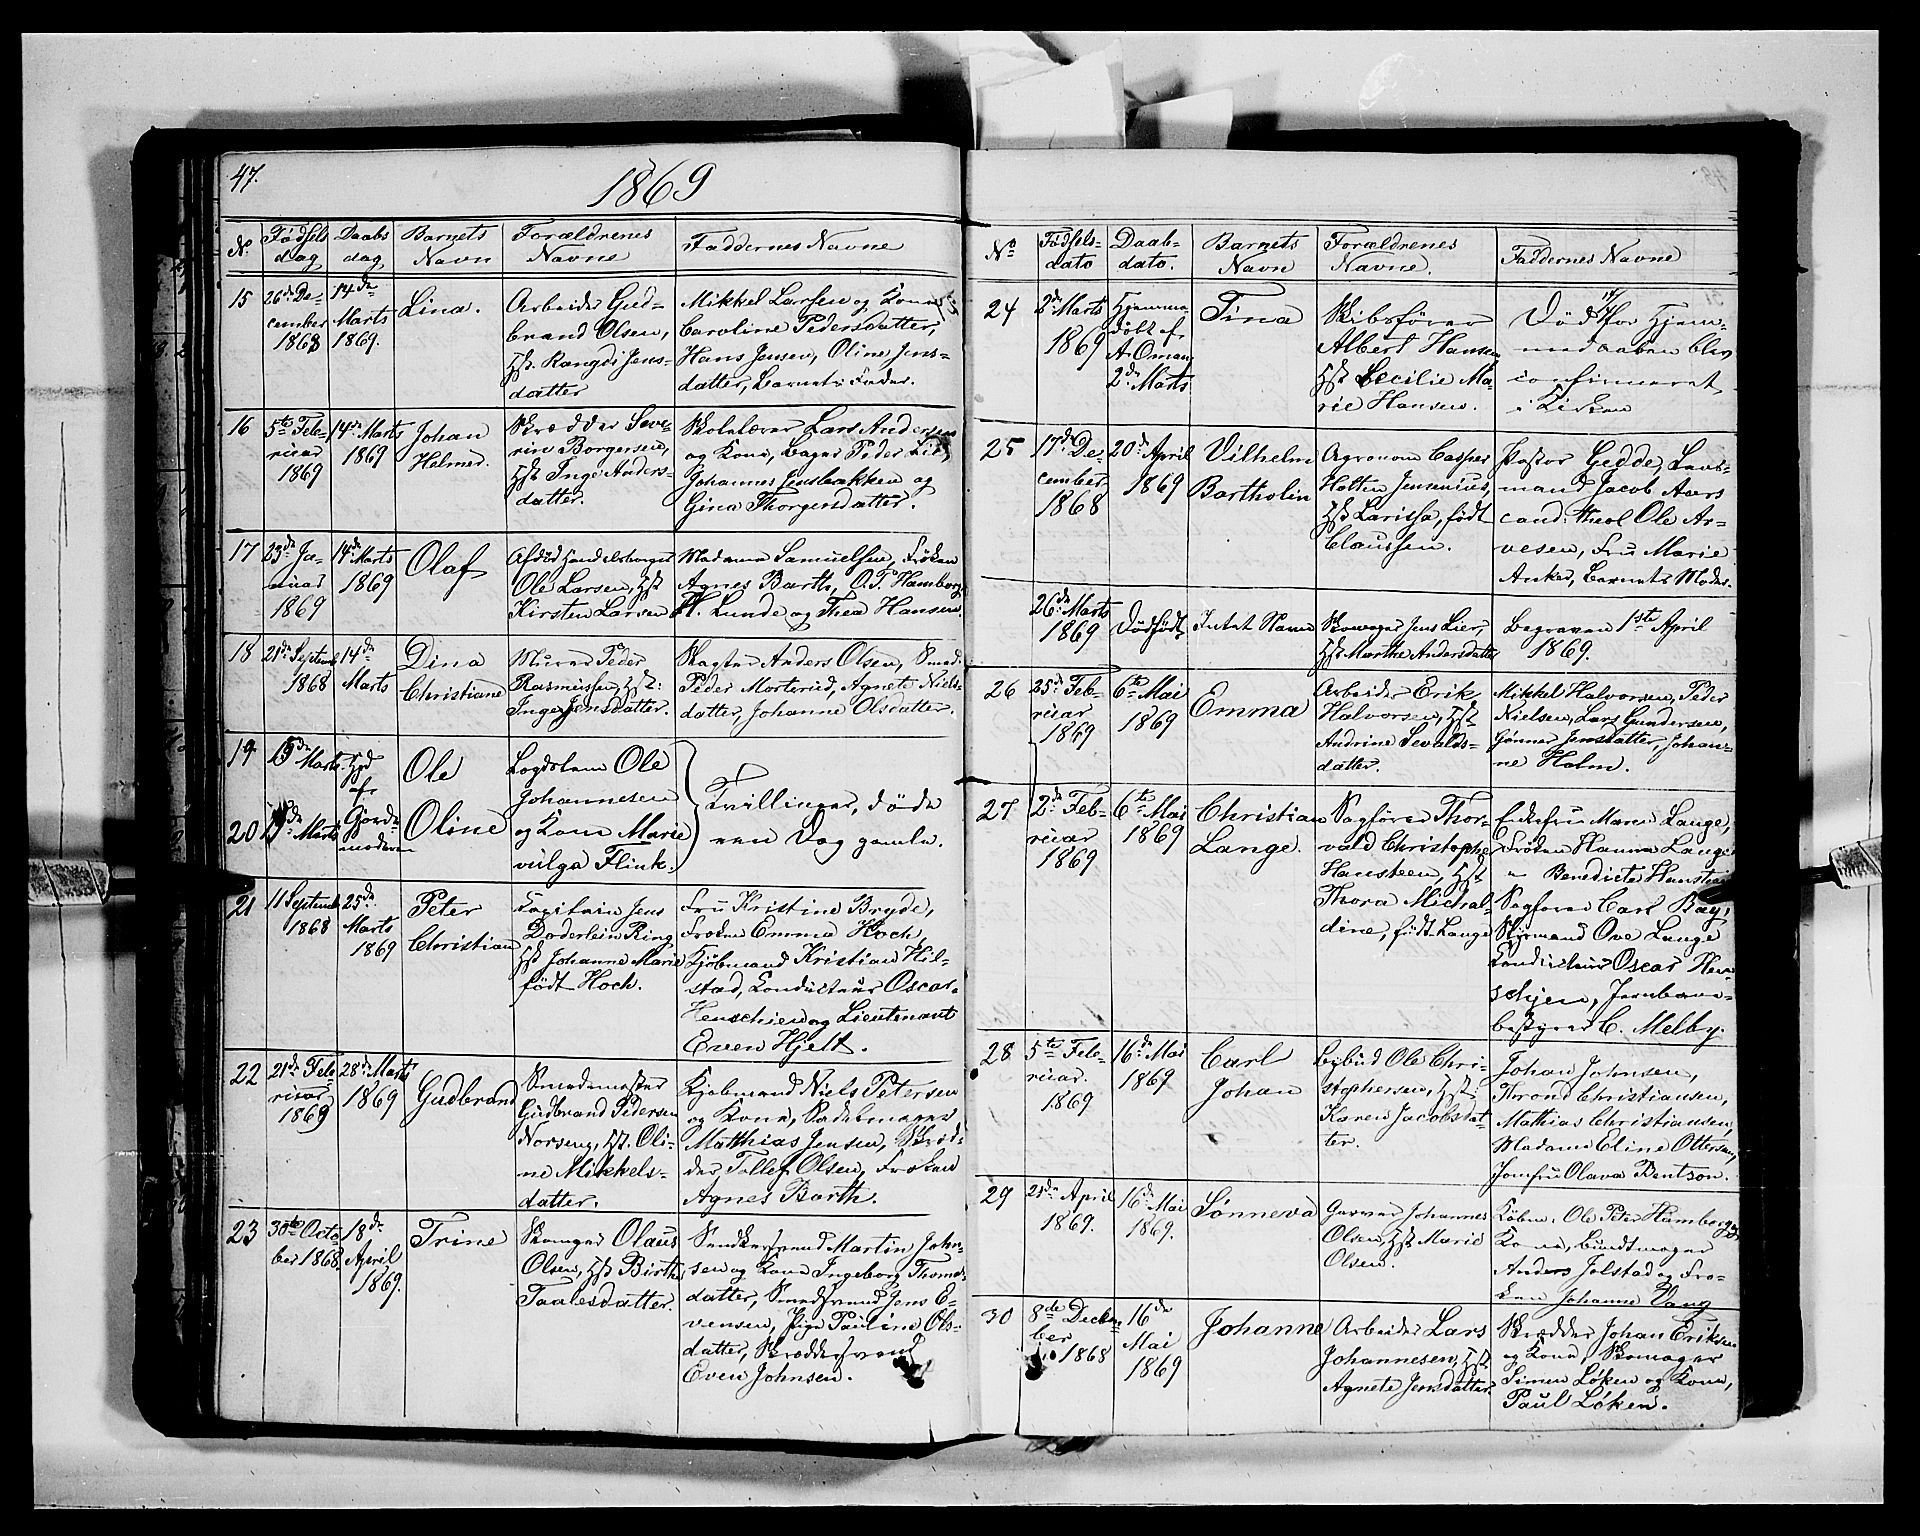 47.
1869
N.
Fødsels
dag
Daabs
dag
Barnets
Navn
Forældrenes
Navne
Faddernes Navne
15
26de De-
cember
1868
14de
Marts
1869.
Lina.
Arbeider Gud-
brand Olsen,
Hst. Rangdi Jens-
datter
Mikkel Larsen og Kone
Caroline Pedersdatter,
Hans Jensen, Oline Jens-
datter, Barnets Fader.
16
5te Feb-
ruar
1869
14de Marts
1869
Johan
Helmer.
Skrædder Seve-
rin Borgersen,
Hst Inge Anders-
datter.
Skolelærer Lars Andersen
og Kone, Bager Peder Lie,
Johannes Jensbakken og
Gina Thorgersdatter.
17
23de Ja-
nuar
1869
14de Marts
1869
Olaf
Afdød Handelsborger
Ole Larsen, Hst
Kirsten Larsen
Madame Samuelsen, Frøken
Agnes Barth, O.P. Hamborg,
H. Lunde og Thea Hansen
18
21de Septemb
1868
14de
Marts
Dina
Christiane
Murer Peder
Rasmussen, Hst:
Inge Jensdatter.
Skogfter Anders Olsen, Smed
Peder Morterud, Agnete Niels-
datter, Johanne Olsdatter.
19
15de Marts
Hjd
af
Ole
Logslem Ole
Johannesen
20
15de Marts
Gjorde-
moderen
Oline
og Kone Marie
vulga Flink.
Tvillinger, døde
een Dag gamle.
21
11 Septemb
1868
25de
Marts
1869
Peter
Christian
Capitain Jens
Døderlein Ring
Hst Johanne Marie
født Hoch.
Fru Kristine Bryde,
Frøken Emma Hoch,
Kjøbmand Kristian Hil-
stad, Conducteur Oscar
Henschien og Lieutenant
Even Hjelt.
22
21de Feb-
ruar
1869
28de Marts
1869
Gudbrand
Smedemester
Gudbrand Pedersen
Norseng, Hst. Oli-
ne Mikkels-
datter.
Kjøbmand Niels Petersen
og Kone, Sadelmager
Matthias Jensen, Skræd-
der Tollef Olsen, Frøken
Agnes Barth.
23
30te Octo-
ber 1868
18de
April
1869.
Trine
Skomager Olaus
Olsen, Hst Birthe
Taalesdatter.
Snedkersvend Martin John-
sen og Kone Ingeborg Thomas-
datter, Smedsvend Jens E-
vensen, Pige Pauline Ols-
datter, Skræddersvend
Even Johnsen.
No
Fødsels-
dato
Daab-
dato.
Barnets
Navn
Forældrenes
Navne.
Faddernes Navne
24
2de Marts
1869
Hjemme-
døbt af
A. Oman
2de Marts
Tina
Skibsfører
Albert Hansen
Hst Cecilie Ma-
rie Hansen.
Død før Hjem-
medaaben blev
confirmeret
i Kirken
25
17de De-
cember
1868
20de April
1869
Vilhelm
Bartholin
Agronom Casper
Holten Jensenius,
Hst Larissa, født
Claussen.
Pastor Gedde, Lens-
mand Jacob Aars
cand: theol Ole Ar-
vesen, Fru Marie
Anker, Barnets Moder.
26de Marts
1869
Dødfødt
Intet Navn
Skomager Jens Lier,
Hst Marthe Andersdatter
Begraven 1ste April
1869.
26
25de Feb-
ruar
1869
6te Mai
1869
Emma
Arbeider Erik
Halvorsen, Hst
Andrine Sevalds-
datter.
Mikkel Halvorsen, Peder
Nielsen, Lars Gundersen,
Gønner Jensdatter, Johan-
ne Holm.
27
2de Feb-
ruar
1869
6te Mai
1869
Christian
Lange.
Sagfører Thor-
vald Christophe
Hansteen, Hst
Thora Michal-
dine, født Lange
Enkefru Maren Lange,
Frøken Hanna Lange
" Benedicta Hansteen
Sagfører Carl Bay,
Styrmand Ove Lange
Conducteur Oscar Hen-
schien, Jernbane-
bestyrer C. Melby.
28
5te Feb-
ruar.
1869
16de Mai
1869
Carl
Johan
Bybud Ole Chri-
stophersen, Hst:
Karen Jacobsdat-
ter.
Johan Johnsen,
Thrond Christiansen,
Mathias Christiansen,
Madame Eline Ottersen,
Jomfru Olava Bentson.
29
21de April
1869.
16de Mai
1869.
Sønneva
Garver Johannes
Olsen, Hst Marie
Olsen.
Købm. Ole Peter Hamborg og
Kone, Bundtmager
Anders Jolstad og Frø-
ken Johanne Vang
30
8de Decem-
ber
1868
16de
Mai
1869
Johanne
Arbeider Lars
Johannesen, Hst
Agnete Jensdatter.
Skrædder Johan Eriksen
og Kone, Skomager
Simen Løken og Kone,
Paul Løken.